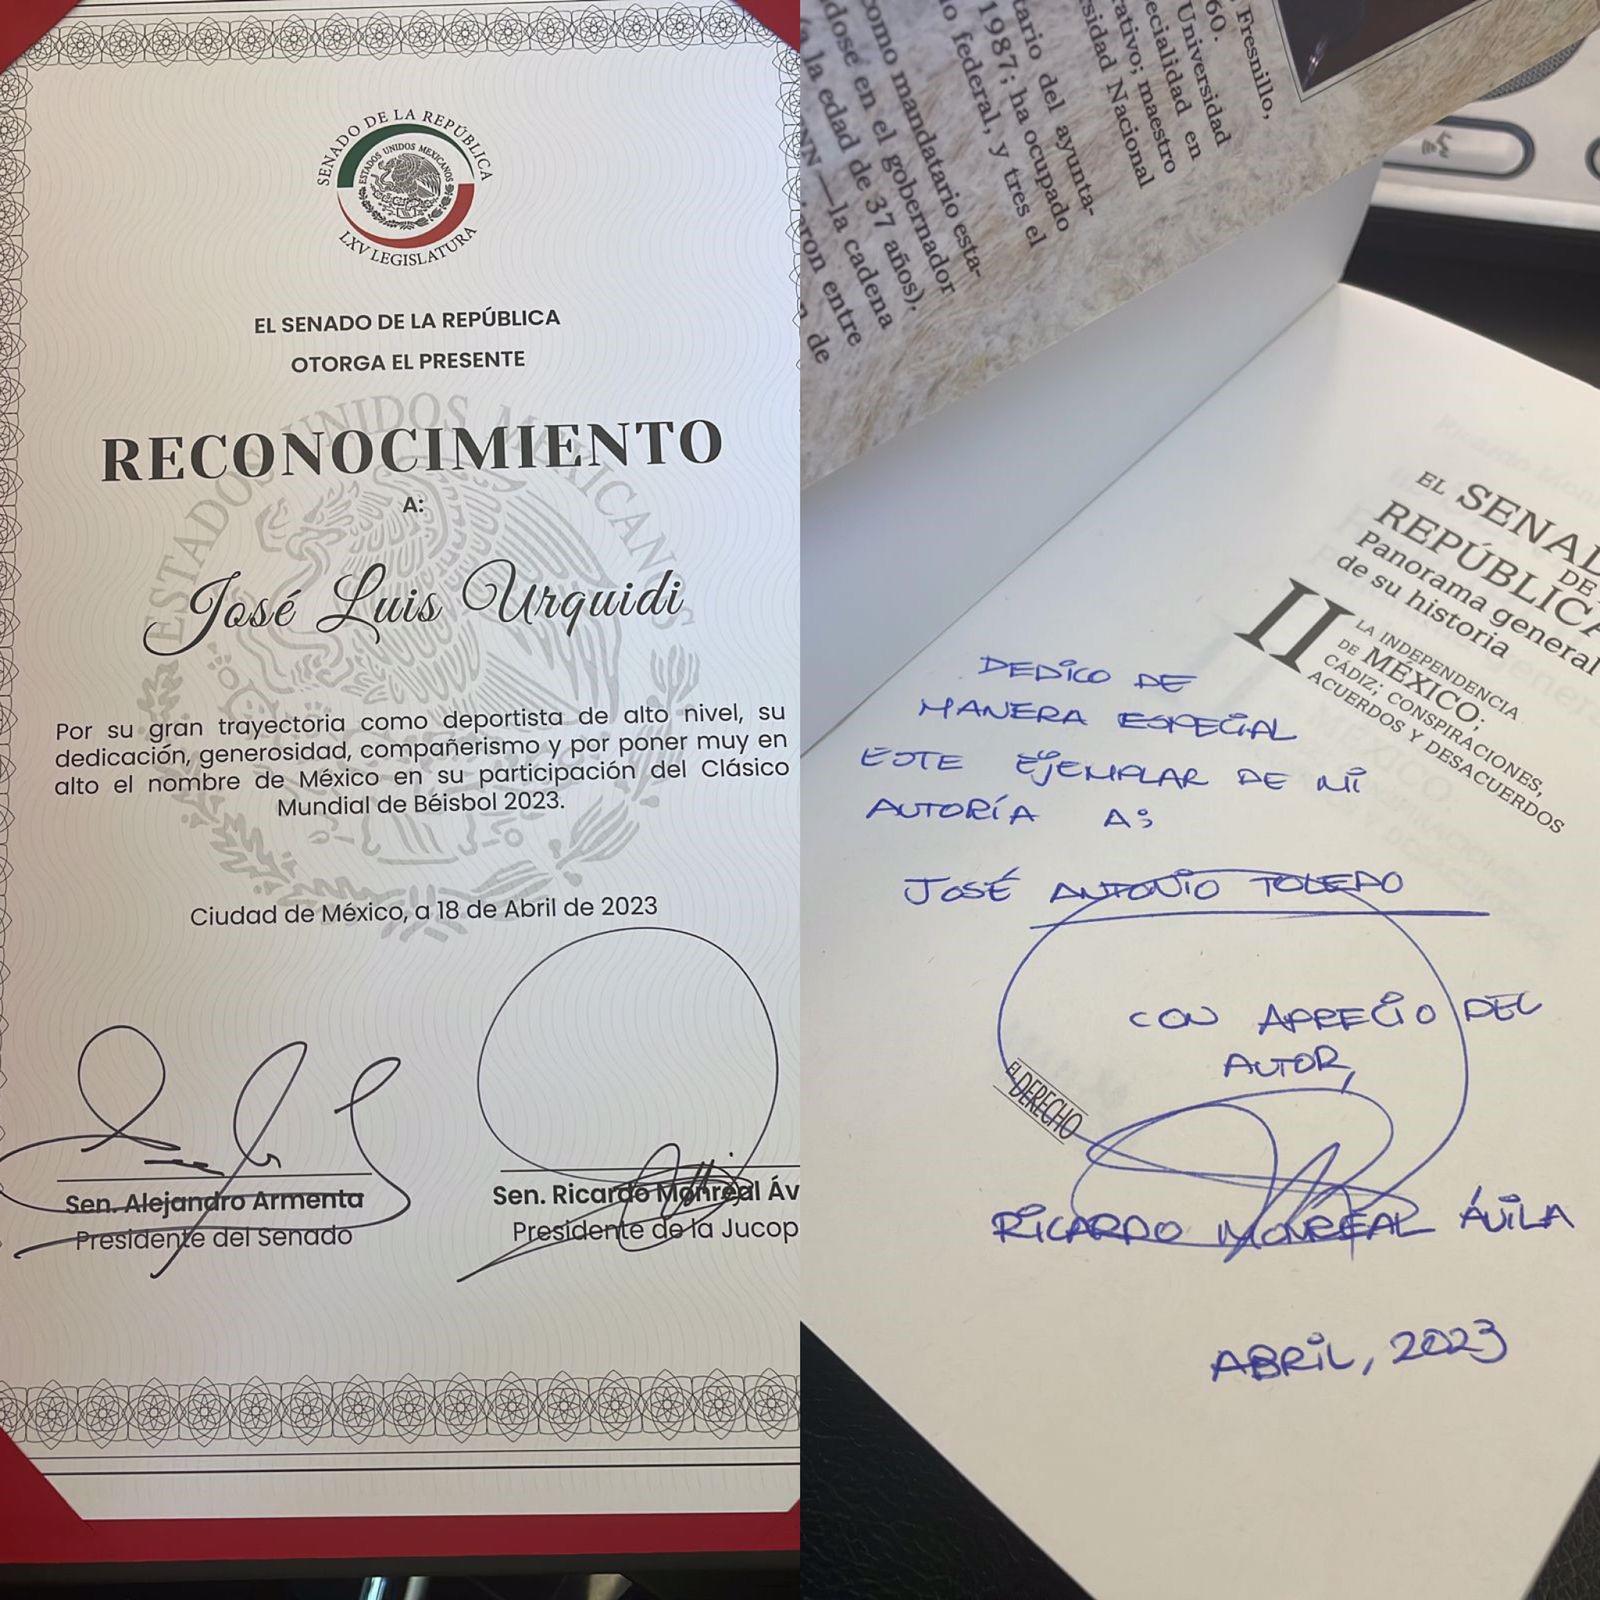 SENADO DE LA REPÚBLICA
ESTADOS UNIDOS MEXICANOS
LXV LEGISLATURA
EL SENADO DE LA REPÚBLICA
OTORGA EL PRESENTE
ESTADOS UNIDOS MEXICANOS
RECONOCIMIENTO
A:
José Luis Urquidi
Por su gran trayectoria como deportista de alto nivel, su
dedicación, generosidad, compañerismo y por poner muy en
alto el nombre de México en su participación del Clásico
Mundial de Béisbol 2023.
Ciudad de México, a 18 de Abril de 2023
Sen. Alejandro Armenta
Presidente del Senado
Sen. Ricardo Monreal Áv
Presidente de la Jucop
Fresnillo,
60.
Universidad
ecialidad en
rativo; maestro
sidad Nacional
tario del ayunta-
1987; ha ocupado
o federal, y tres el
como mandatario esta-
dose en el gobernador
a la edad de 37 años),
NN —la cadena
aron entre
de
EL SENAD
DE
REPÚBLICA
Panorama general
de su historia
II
LA INDEPENDENCIA
DE MÉXICO:
CÁDIZ; CONSPIRACIONES,
ACUERDOS Y DESACUERDOS
DEDICO DE
MANERA ESPECIAL
ESTE EJEMPLAR DE MI
AUTORÍA A:
JOSÉ ANTONIO TOLEDO
CON APRECIO DEL
AUTOR,
EL DERECHO
RICARDO MONREAL ÁVILA
ABRIL, 2023